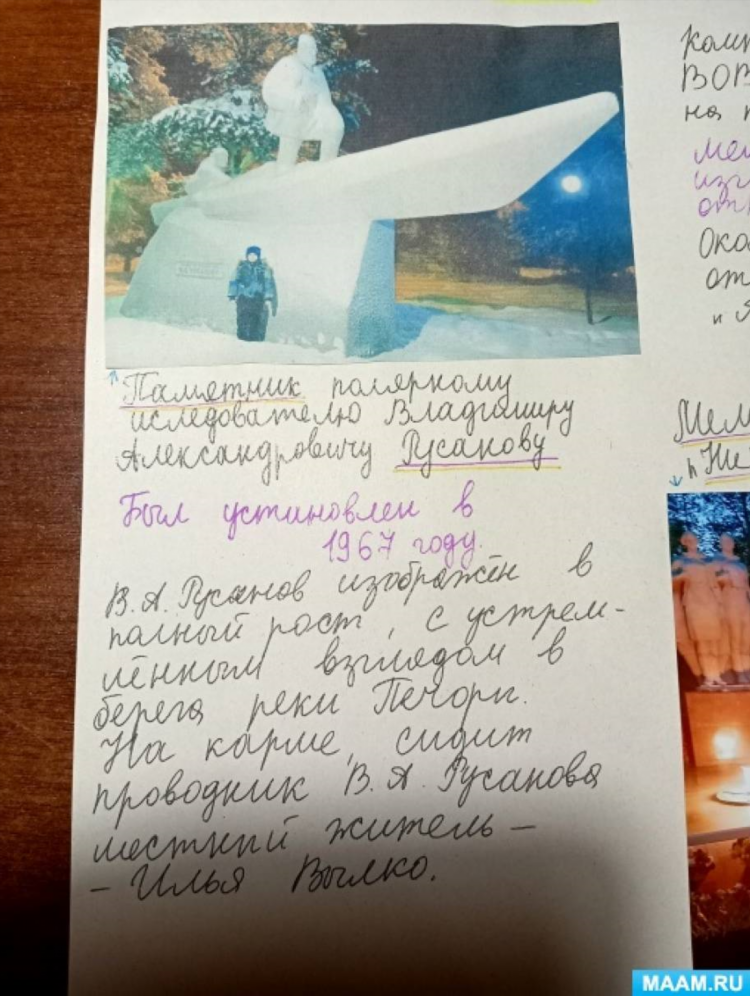 Памятник полярному
иследователю Владимиру
Александровичу Русакову
Был установлен в
1967 году.
В.А.Русанов изображён в
палный рост, с устрем-
лённым взглядом в
берега реки Печоры.
На карме, сидит
проводник В.А.Русанова
местный житель –
– Илья Вылко.
ВОВ
на
Мем
MAAM.RU